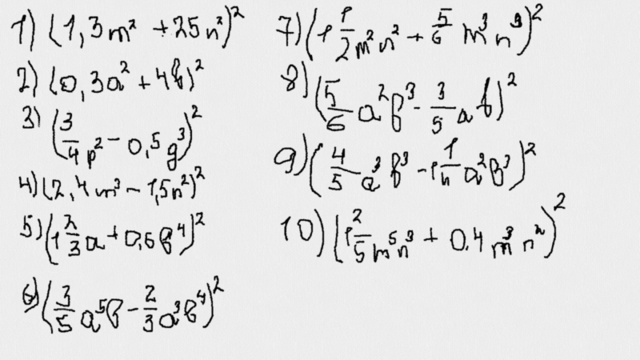 1) (1,3m² + 25n²)²
2) (0,3a² + 4b)²
3) (3/4 p² - 0,5g³)²
4) (2,4m³ - 1,5n²)²
5) (1 2/3 a + 0,6b⁴)²
6) (3/5 a⁵b - 2/3 a³b⁴)²
7) (1 1/2 m²n² + 5/6 m³n³)²
8) (5/6 a²b³ - 3/5 ab)²
9) (4/5 a³b³ - 1 1/4 a²b³)²
10) (1 2/5 m⁵n³ + 0.4 m³n²)²